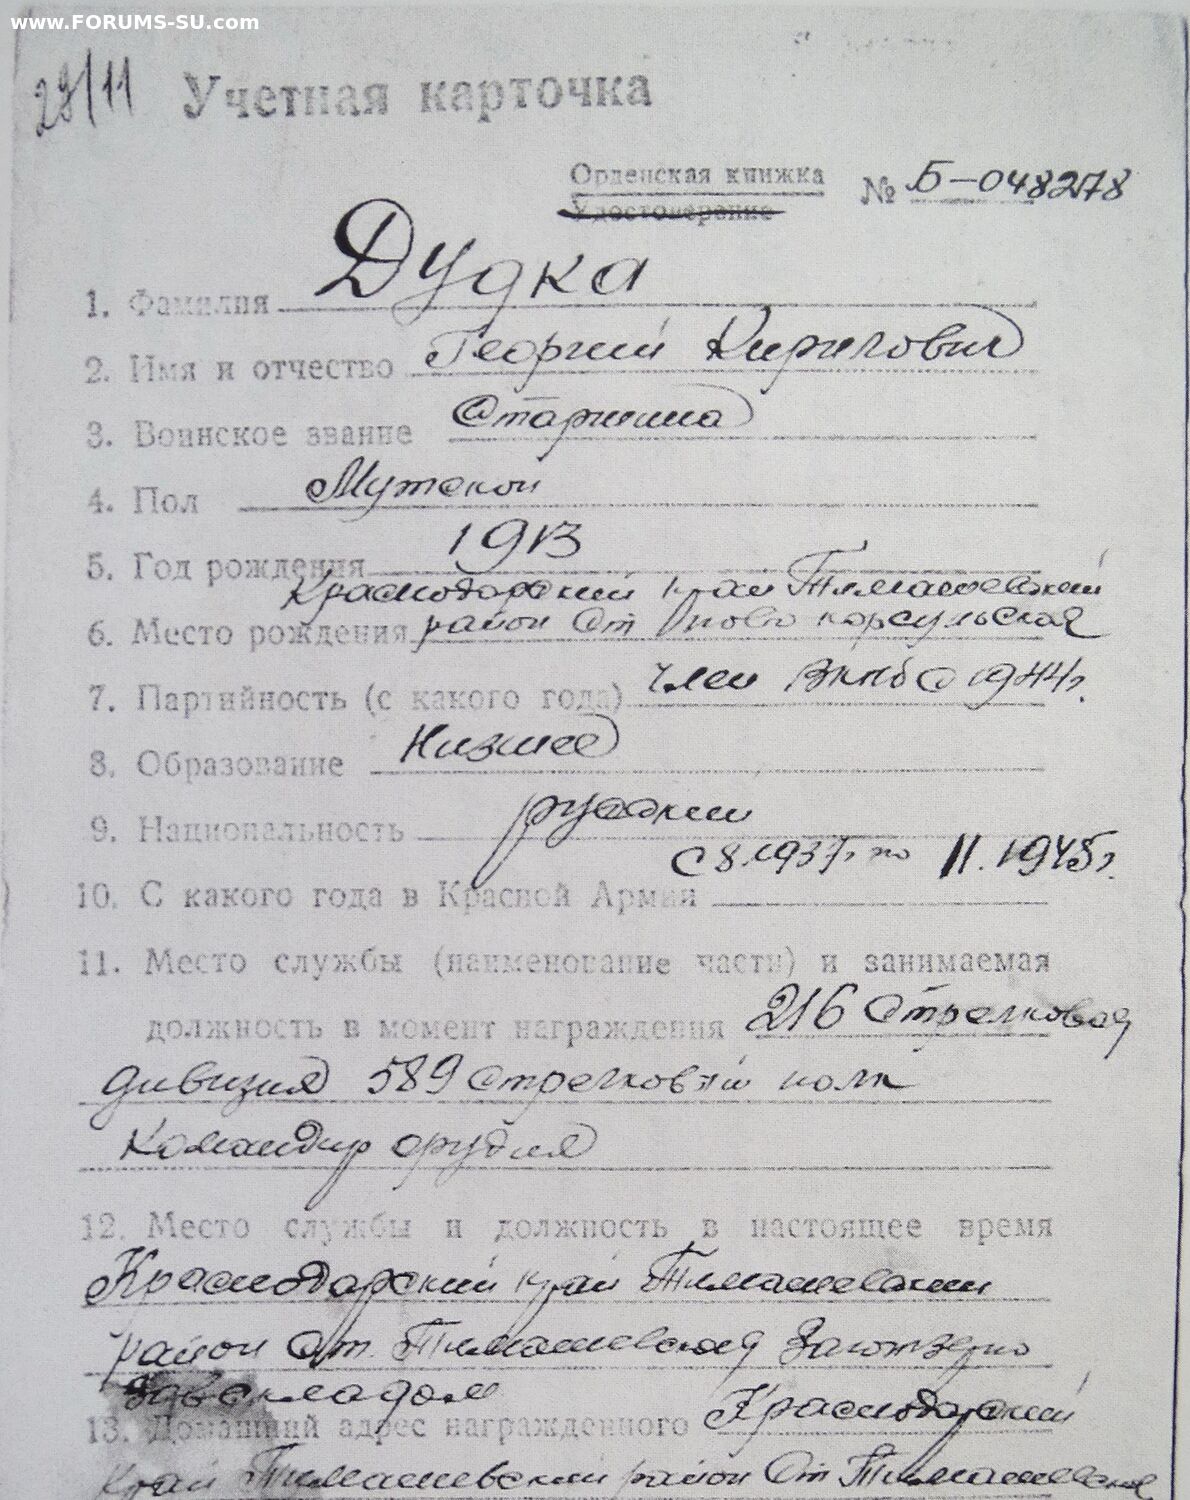 www.FORUMS-SU.com
29/11 Учетная карточка
Орденская книжка № Б-048278
Удостоверение
Дудка
1. Фамилия
2. Имя и отчество Георгий Кирилович
3. Воинское звание Старшина
4. Пол Мужской
5. Год рождения 1913
Краснодарский край Тимашевский
6. Место рождения район Ст Ново корсульская
7. Партийность (с какого года) член ВКПб с 1944г.
8. Образование Низшее
9. Национальность русский
с 8.1937г. по 11.1945г.
10. С какого года в Красной Армии
11. Место службы (наименование части) и занимаемая
должность в момент награждения 216 Стрелковая
дивизия 589 стрелковый полк
Командир орудия
12. Место службы и должность в настоящее время
Краснодарский край Тимашевский
район Ст. Тимашевская Заготзерно
Завскладом
13. Домашний адрес награжденного Краснодарский
край Тимашевский район Ст Тимашевская